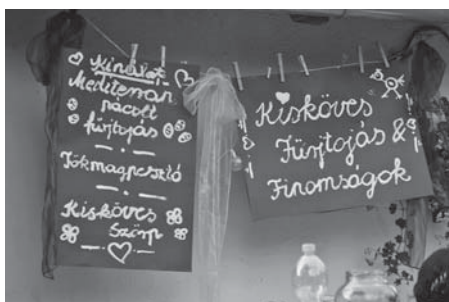 Kínálat
Mediterrán
pácolt
fürjtojás
Tökmagpesztó
Kisköves
Szörp
Kisköves
Fürjtojás &
Finomságok